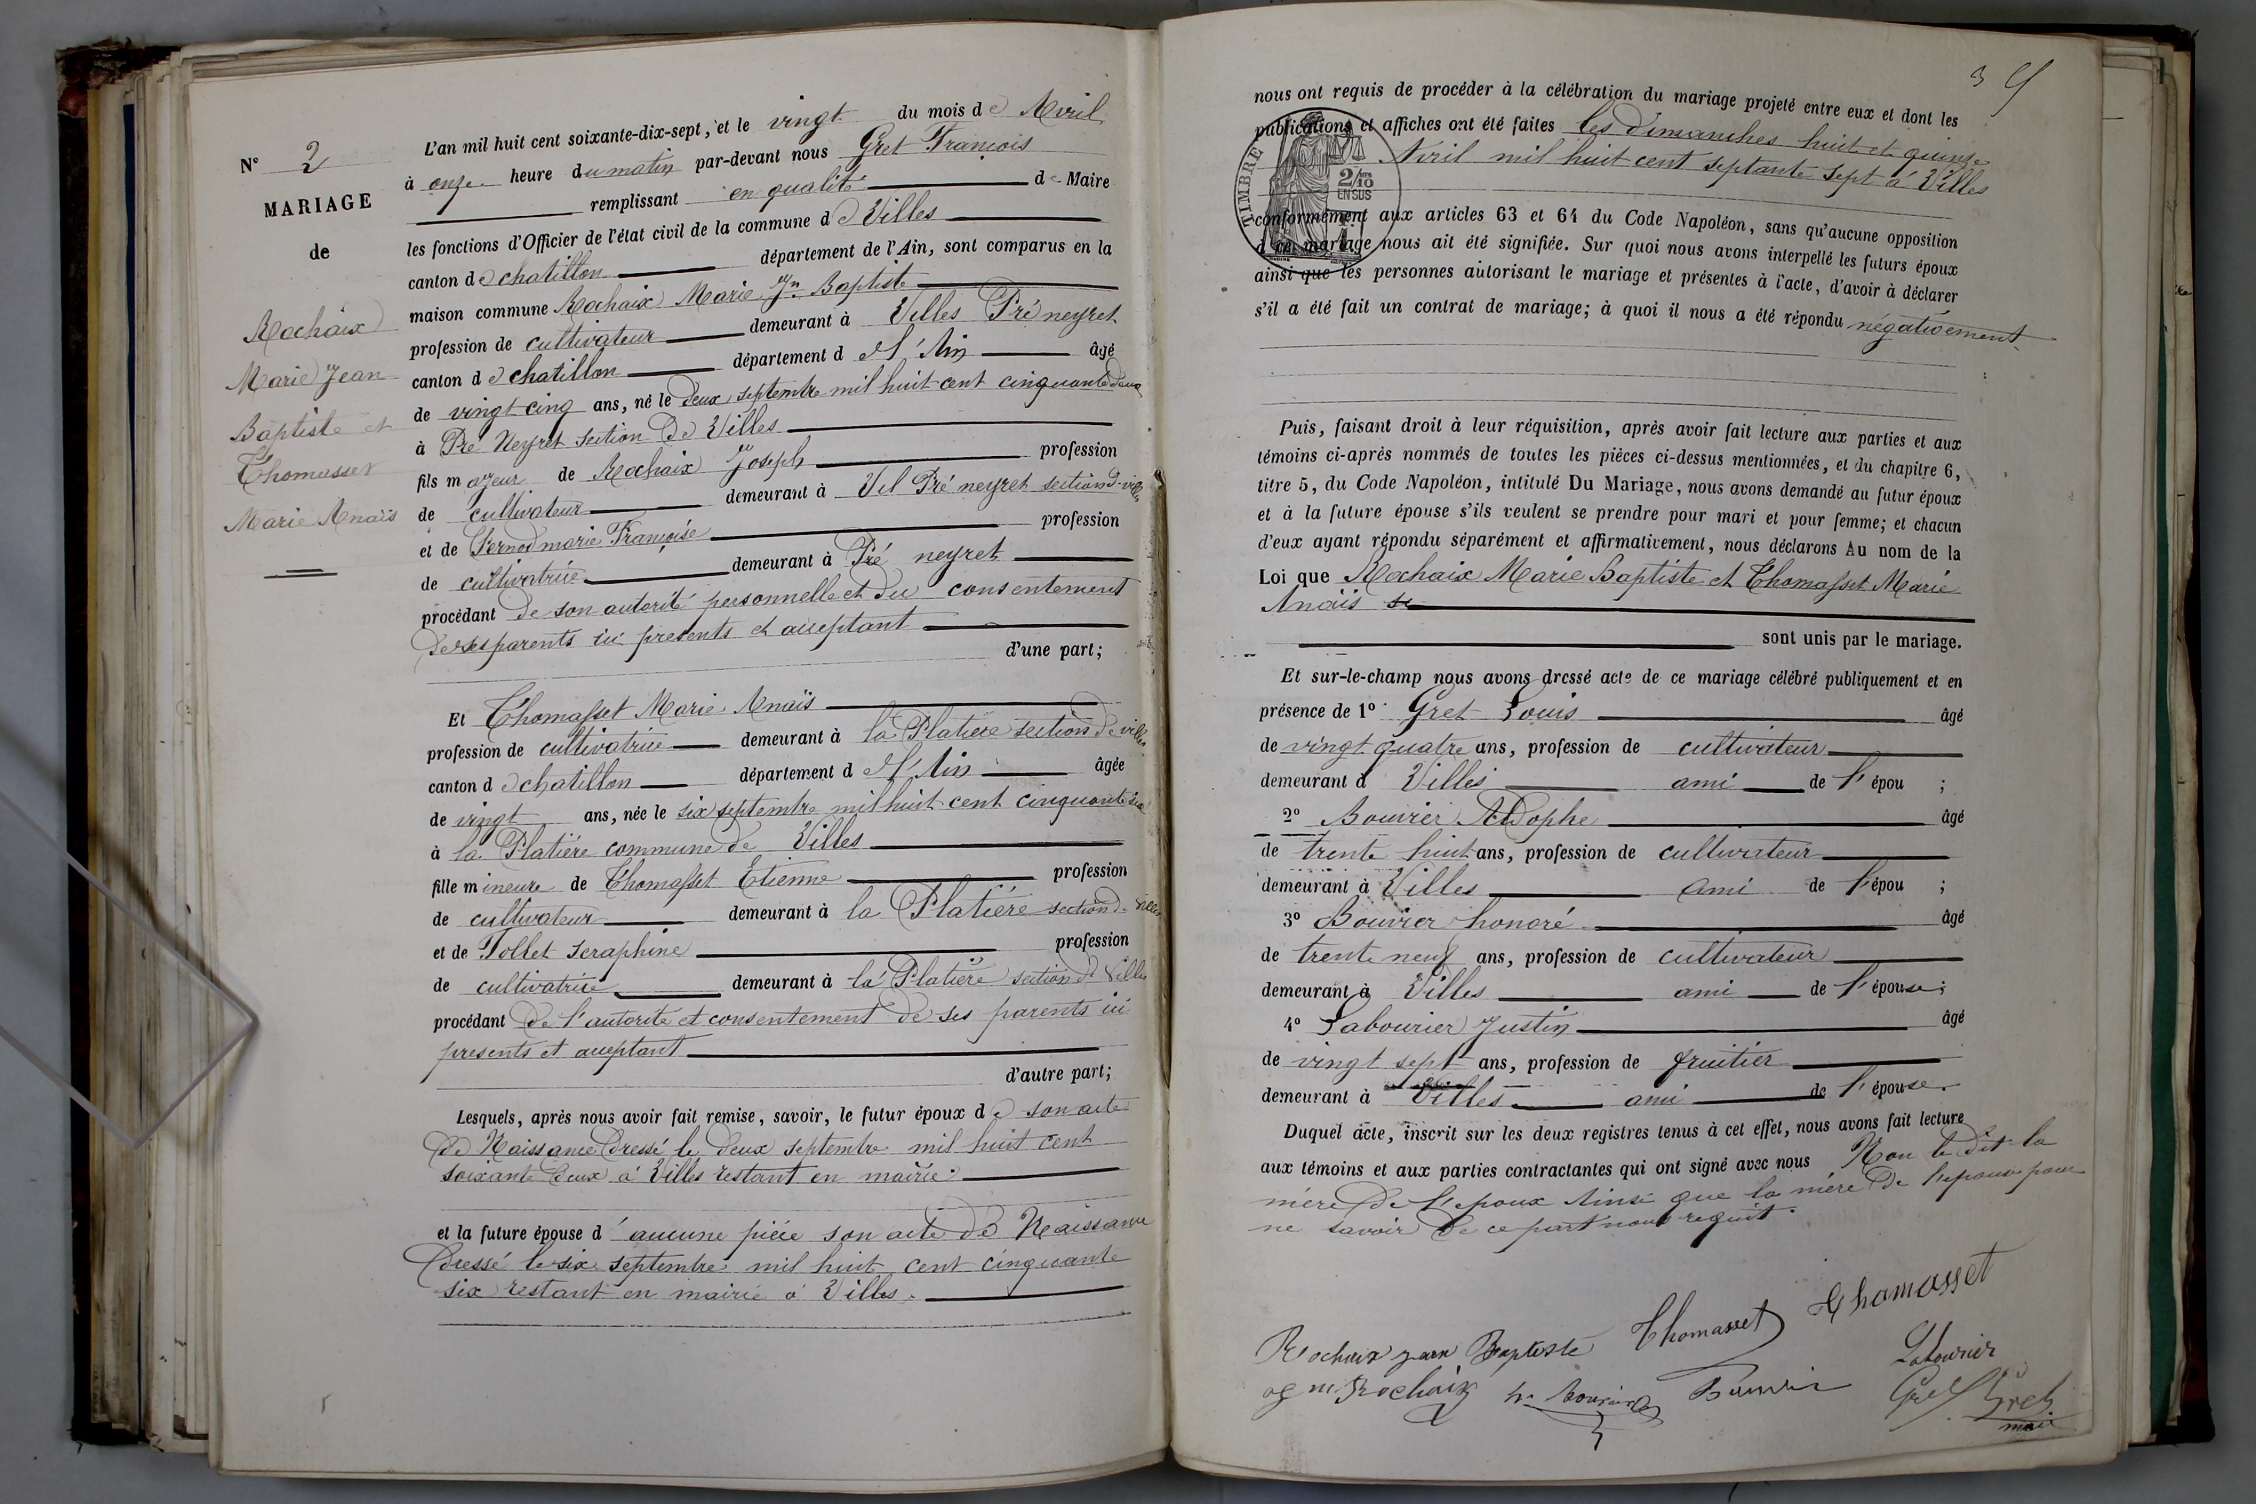 N° 2
MARIAGE
de
Rochaix
Marie Jean
Baptiste et
Thomasset
Marie Anaïs
L'an mil huit cent soixante-dix-sept, et le vingt du mois de Avril
à onze heure du matin par-devant nous Gret François
de Maire
remplissant en qualité
les fonctions d'Officier de l'état civil de la commune de Villes
canton de chatillon département de l'Ain, sont comparus en la
maison commune Rochaix Marie Jn Baptiste
profession de cultivateur demeurant à Villes Pré neyret
canton de chatillon département de l'Ain âgé
de vingt cinq ans, né le deux septembre mil huit cent cinquante deux
à Pré Neyret section de Villes
fils majeur de Rochaix Joseph profession
de cultivateur demeurant à Vil Pré neyret section d. villes
et de Pernod marie Françoise profession
de cultivatrice demeurant à Pré neyret
procédant de son autorité personnelle et du consentement
de ses parents ici presents et acceptant
d'une part;
Et Thomasset Marie Anaïs
profession de cultivatrice demeurant à la Platière section de villes
canton de chatillon département de l'Ain âgée
de vingt ans, née le six septembre mil huit cent cinquante six
à la Platière commune de Villes
fille mineure de Thomasset Etienne profession
de cultivateur demeurant à la Platière section d. villes
et de Tollet seraphine profession
de cultivatrice demeurant à la Platière section d. Villes
procédant de l'autorité et consentement de ses parents ici
presents et acceptant
d'autre part;
Lesquels, après nous avoir fait remise, savoir, le futur époux de son acte
de Naissance dressé le deux septembre mil huit cent
soixante deux à Villes restant en mairie
et la future épouse d'aucune pièce son acte de Naissance
dressé le six septembre mil huit cent cinquante
six restant en mairie à Villes.
3
nous ont requis de procéder à la célébration du mariage projeté entre eux et dont les
publications et affiches ont été faites les dimanches huit et quinze
Avril mil huit cent septante sept à Villes
TIMBRE
2/10
EN SUS
conformément aux articles 63 et 64 du Code Napoléon, sans qu'aucune opposition
à ce mariage nous ait été signifiée. Sur quoi nous avons interpellé les futurs époux
ainsi que les personnes autorisant le mariage et présentes à l'acte, d'avoir à déclarer
s'il a été fait un contrat de mariage; à quoi il nous a été répondu négativement
Puis, faisant droit à leur réquisition, après avoir fait lecture aux parties et aux
témoins ci-après nommés de toutes les pièces ci-dessus mentionnées, et du chapitre 6,
titre 5, du Code Napoléon, intitulé Du Mariage, nous avons demandé au futur époux
et à la future épouse s'ils veulent se prendre pour mari et pour femme; et chacun
d'eux ayant répondu séparément et affirmativement, nous déclarons Au nom de la
Loi que Rochaix Marie Baptiste et Thomasset Marie
Anaïs
sont unis par le mariage.
Et sur-le-champ nous avons dressé acte de ce mariage célébré publiquement et en
présence de 1° Gret Louis âgé
de vingt quatre ans, profession de cultivateur
demeurant à Villes ami de l'épou ;
2° Bouvier Adophe âgé
de trente huit ans, profession de cultivateur
demeurant à Villes ami de l'épou ;
3° Bouvier honoré âgé
de trente neuf ans, profession de cultivateur
demeurant à Villes ami de l'épouse;
4° Labourier Justin âgé
de vingt sept ans, profession de fruitier
demeurant à Villes ami de l'épouse.
Duquel acte, inscrit sur les deux registres tenus à cet effet, nous avons fait lecture
aux témoins et aux parties contractantes qui ont signé avec nous Non le dit la
mère de l'epoux Ainsi que la mère de l'epouse pour
ne savoir de ce part nous requit.
Rochaix jean Baptiste Thomasset Thomasset
Labourier
Rochaix h. Bouvier Bouvier Gret Gret
maire